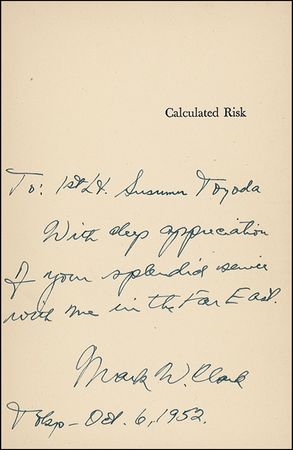 Calculated Risk
To: 1st Lt. Susumu Toyoda
With deep appreciation
of your splendid service
with me in the Far East.
Mark W. Clark
Tokyo - Oct. 6, 1952.